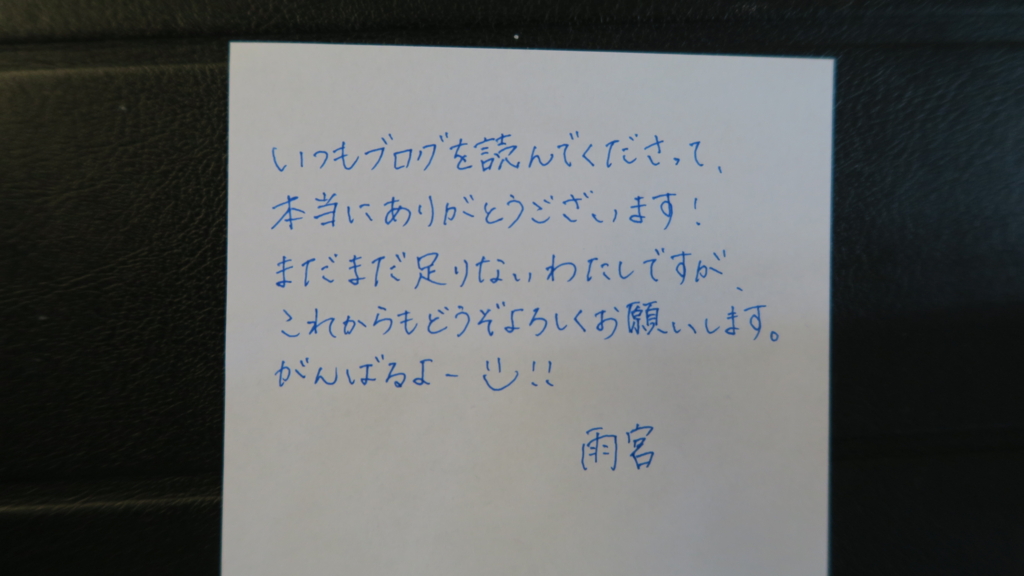 いつもブログを読んでくださって、
本当にありがとうございます!
まだまだ足りないわたしですが、
これからもどうぞよろしくお願いします。
がんばるよー !!
雨宮